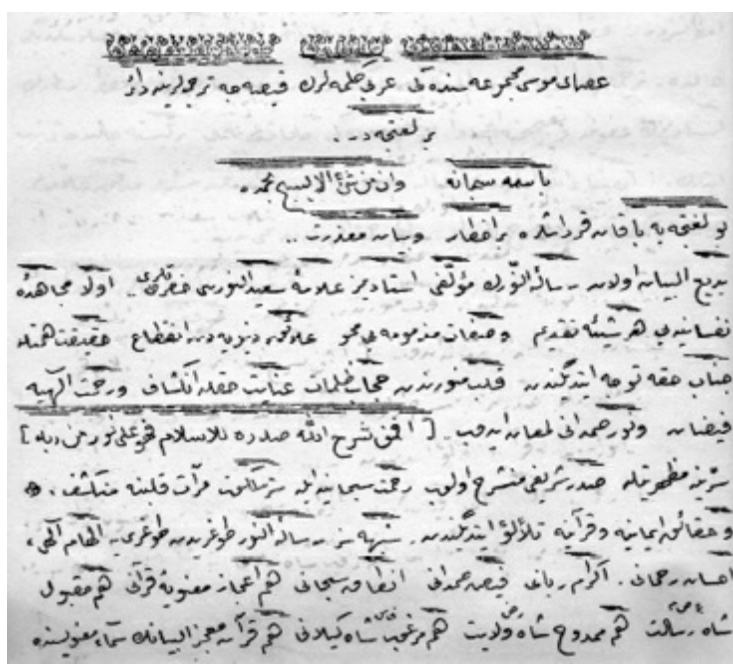 عصای موسی مجموعه سنده کی عربی کلمه لرك قیصه جه ترجمه لرینه دائر
بر لغتچه در .
باسمه سبحانه وان من شئ الا یسبح بحمده
بو لغتچه یه باقان قرداشلره بر اخطار وبیان معذرت ..
بدیع البیان اولان رسالۀ النورك مؤلفی استادیمز علامۀ سعید النورسی حضرتلری . اولا مجاهدۀ
نفسانیه یی هر شیئه تقدیم وصفات مذمومه یی محو علائق دنیویه دن انقطاع حقیقت همتله
جناب حقه توجه ایتدیگندن قلب منورندن حجاب ظلمات عنایت حقله انکشاف ورحمت الٓهیه
فیضان ونور رحمدانی لمعان ایدوب . [ افمن شرح الله صدره للاسلام فهو علی نور من ربه ]
سرینه مظهریتله صدر شریفی منشرح اولوب رحمت سبحانیه ایله سر ملکوت مرآت قلبنه منکشف ،
وحقائق ایمانیه وقرآنیه تلألؤ ایتدیگندن . شبهه سز رسالۀ النور طوغریدن طوغری یه الهام الٓهی ،
احسان رحمانی . اکرام ربانی فیض صمدانی انطاق سبحانی هم اعجاز معنویۀ قرآنی هم مقبول
شاه رسالت هم ممدوح شاه ولایت هم مرغوب شاه کیلانی هم قرآن معجز البیانك سماء معنویسنده